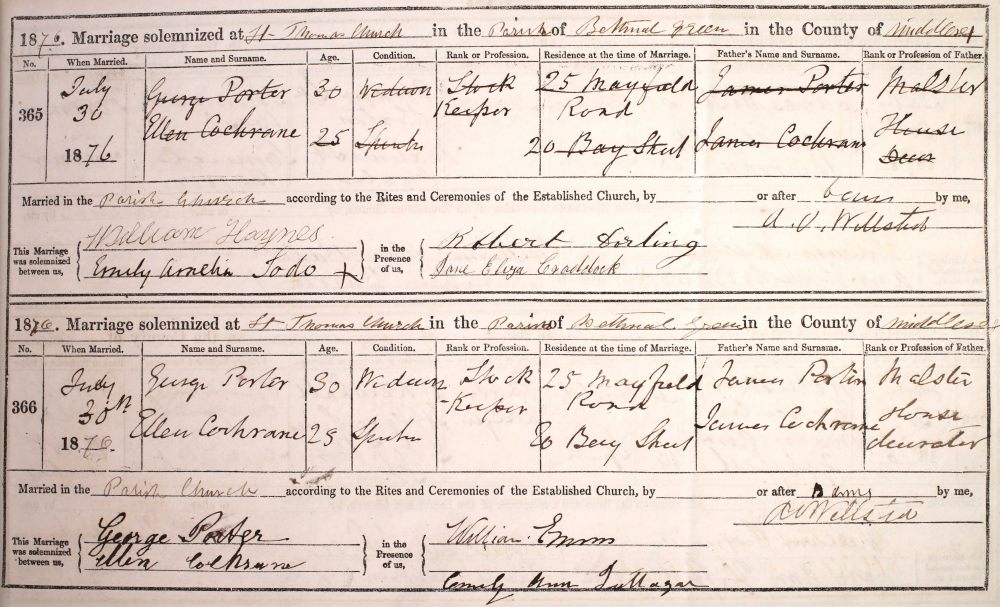 1876. Marriage solemnized at St Thomas Church in the Parish of Bethnal Green in the County of Middlesex
No. When Married. Name and Surname. Age. Condition. Rank or Profession. Residence at the time of Marriage. Father's Name and Surname. Rank or Profession of Father.
365 July 30 1876 George Porter 30 Stock Keeper 25 Mayfield Road James Porter Malster
Ellen Cochrane 25 20 Bay Street James Cochrane House
Married in the Parish Church according to the Rites and Ceremonies of the Established Church, by or after by me,
This Marriage was solemnized between us, William Haynes in the Presence of us, Robert Dorling
Emily Amelia Todo X Jane Eliza Craddock
1876. Marriage solemnized at St Thomas Church in the Parish of Bethnal Green in the County of Middlesex
No. When Married. Name and Surname. Age. Condition. Rank or Profession. Residence at the time of Marriage. Father's Name and Surname. Rank or Profession of Father.
366 July 30th 1876. George Porter 30 Stock Keeper 25 Mayfield Road James Porter Malster
Ellen Cochrane 25 Street James Cochrane House decorater
Married in the Parish Church according to the Rites and Ceremonies of the Established Church, by or after Banns by me,
This Marriage was solemnized between us, George Porter in the Presence of us, William
Ellen Cochrane Emily Ann